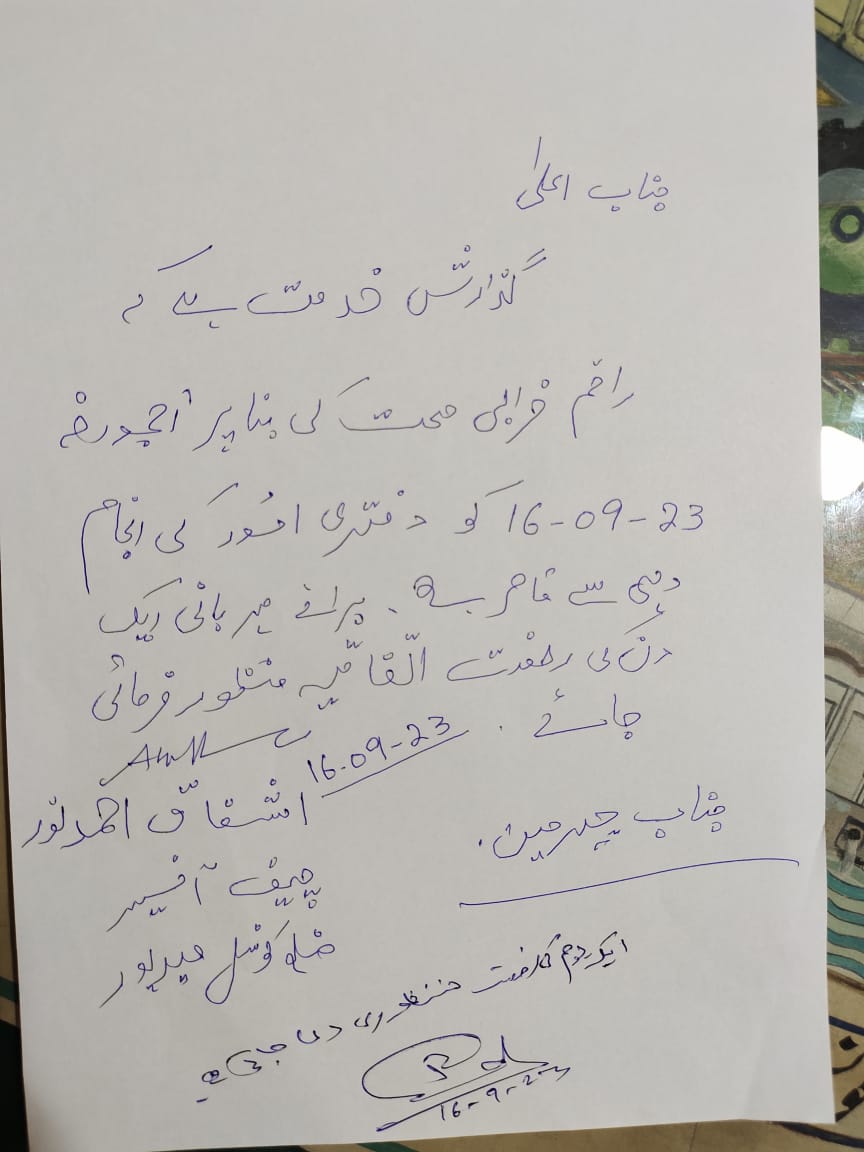 جناب اعلیٰ
گذارش خدمت ہے کہ
راقم خرابی صحت کی بنا پر آج مورخہ
16-09-23 کو دفتری امور کی انجام
دہی سے قاصر ہے۔ برائے مہربانی ایک
دن کی رخصت اتفاقیہ منظور فرمائی
جائے۔
16-09-23
اشفاق احمد نور
جناب چیرمین۔
چیف آفیسر
ضلع کونسل میرپور
ایک یوم کی رخصت منظوری دی جاتی ہے
16-9-23